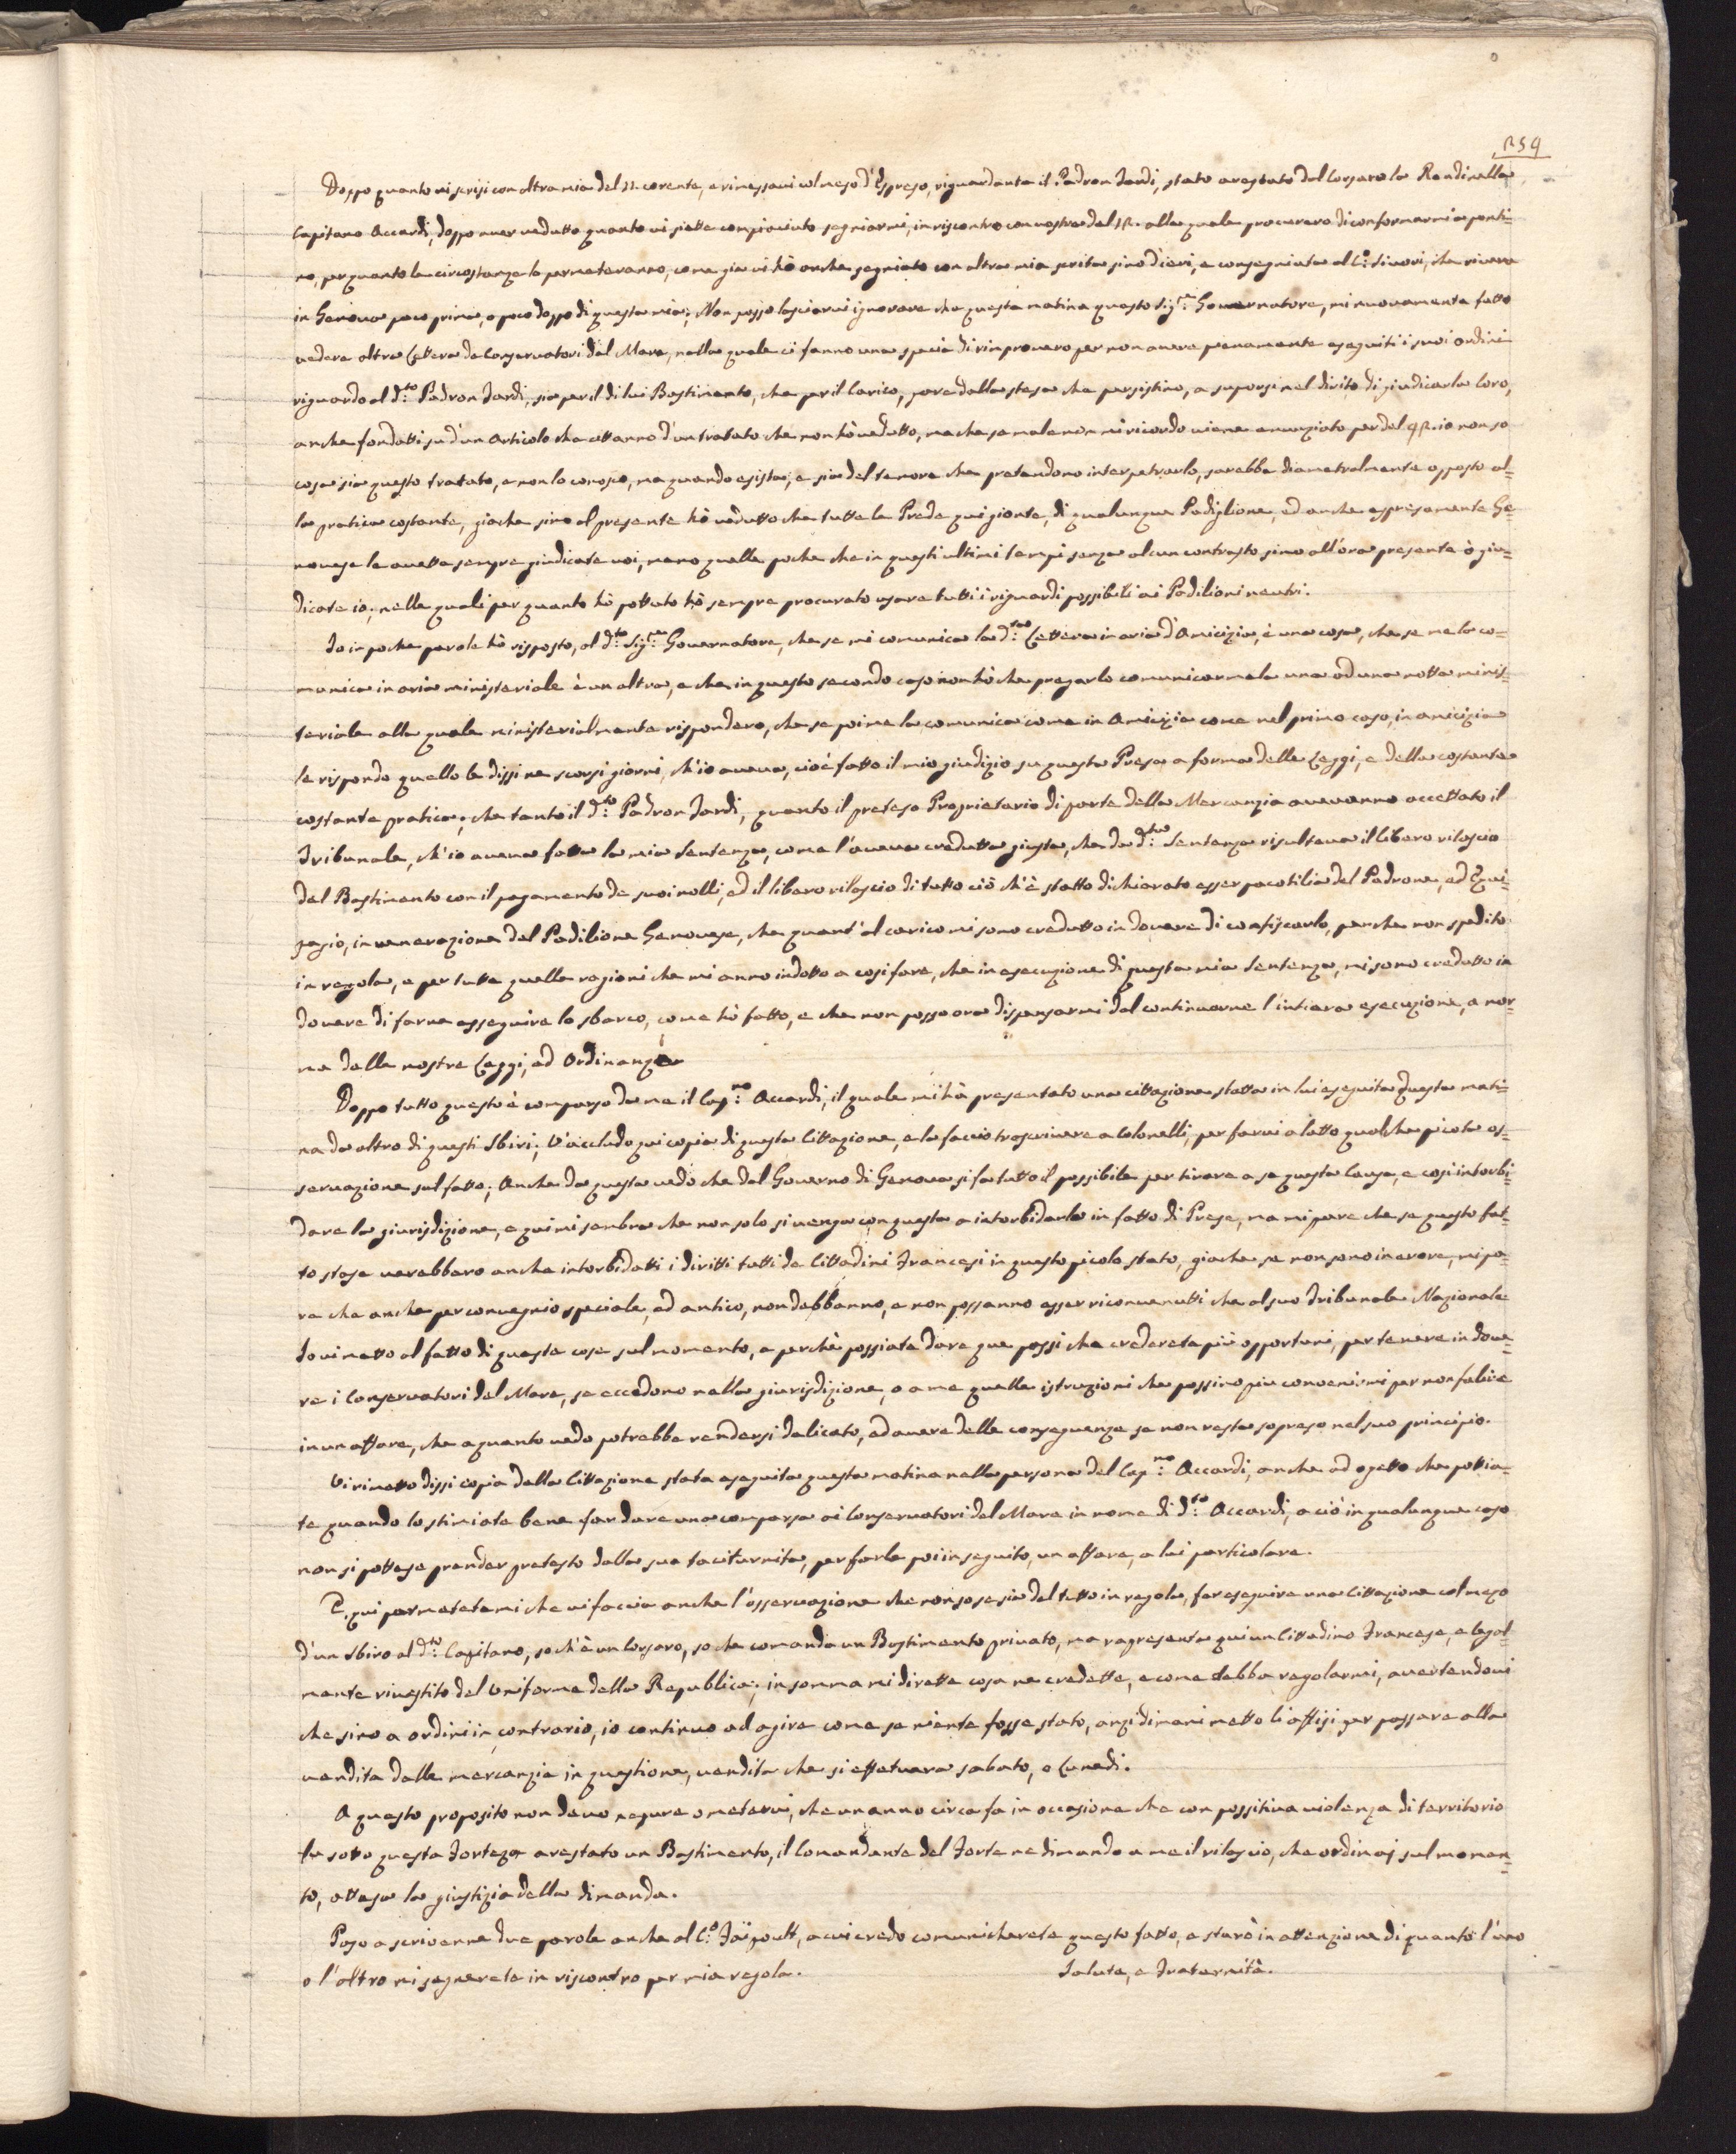 259
Doppo quanto vi scrissi con altra mia del 11. corente, e rimessavi col mezo d'Espreso, riguardante il Padron Jardi, stato arestato dal Corsaro la Rondinella
Capitano Accardi, doppo aver vedutto quanto vi siette compiaciuto segniarmi, in riscontro con vostra del 12. alla quale procurero di conformarmi a ponti-
no, per quanto le circostanze lo permeteranno, come gia vi hò anche segniato con altra mia scrita sino d'ieri, e consegniata al C.º Sivori, che rivera
in Genova poco prima, o poco doppo di questa mia; Non posso lasciarvi ignorare che questa matina questo Sig.re Governatore, mi nuovamente fatto
vedere altra Lettera de Conservatori del Mare, nella quale ci fanno una specie di rimprovero per non avere pienamente eseguiti i suoi ordini
riguardo al d.to Padron Jardi, sia per il di lui Bastimento, che per il Carico, pare dalla stesa che persistino, a suporsi nel dirito di giudicarla loro,
anche fondatti su d'un Articolo che cittanno d'un tratato che non hò vedutto, ma che se male non mi ricordo viene anunziato per del 92. io non so
cosa sia questo tratato, e non lo conosco, ma quando esista, e sia del tenore che pretendono interpetrarlo, sarebbe diametralmente opposto al-
la pratica costante, giache sino al presente hò vedutto che tutte le Prede qui gionte, di qualunque Padiglione, ed anche espresamente Ge-
novese le avette sempre giudicate voi, meno quelle poche che in questi ultimi tempi senza alcun contrasto sino all'ora presente ò giu-
dicate io; nelle quali per quanto hò pottuto hò sempre procurato usare tutti i riguardi possibili ai Padilioni neutri.
Io in poche parole hò risposto, al d.to Sig.re Governatore, che se mi comunica la d.ta Lettera in aria d'Amicizia, è una cosa, che se me la co-
munica in aria ministeriale è un altra, e che in questo secondo caso non hò che pregarlo comunicarmela una ad una notta minis-
teriale alla quale ministerialmente rispondero, che se poi me la comunica come in Amicizia come nel primo caso, in amicizia
le rispondo quello le dissi ne scorsi giorni, ch'io aveva, cioè fatto il mio giudizio su questa Presa a forma delle Leggi, e della costante
costante pratica; che tanto il d.to Padron Jardi, quanto il preteso Proprietario di parte della Mercanzia avevanno accettato il
Tribunale, ch'io aveva fatta la mia Sentenza, come l'aveva creduta giusta, che da d.ta Sentenza risultava il libero rilascio
del Bastimento con il pagamento de suoi nolli, ed il libero rilascio di tutto ciò ch'è statto dichiarato esser pacotilia del Padrone, ed Equi-
pagio, in venerazione del Padilione Genovese, che quant'al carico mi sono creduto in dovere di confiscarlo, perche non spedito
in regola, e per tutte quelle ragioni che mi anno indotto a cosi fare, che in esecuzione di questa mia Sentenza, mi sono credutto in
dovere di farne esseguire lo sbarco, come hò fatto, e che non posso ora dispensarmi dal continuarne l'intiera esecuzione, a nor-
ma delle nostre Leggi, ed Ordinanze
Doppo tutto questo è comparso da me il Cap.no Accardi, il quale mi hà presentato una cittazione statta in lui eseguita questa mati-
na da altro di questi Sbiri; V'accludo qui copia di questa Cittazione, e la faccio trascrivere a Colonelli, per farvi a latto qualche picola os-
servazione sul fatto; Anche da questa vedo che dal Governo di Genova si fa tutto il possibile per tirare a se questa Causa, e cosi intorbi-
dare la giurisdizione, e qui mi sembra che non solo si venga con questa a intorbidarla in fatto di Prese, ma mi pare che se questo fat-
to stase verebbero anche intorbidatti i diritti tutti de Cittadini Francesi in questo picolo stato, giache se non sono in erore, mi pa-
re che anche per convegnio speciale, ed antico, non debbanno, e non possanno esser riconvenutti che al suo Tribunale Nazionale
Io vi metto al fatto di queste cose sul momento, e perchè possiate dare que passi che crederete più opportuni, per tenere in dove-
re i Conservatori del Mare, se eccedono nella giurisdizione, o a me quelle istruzioni che possino piu convenirmi per non falire
in un affare, che a quanto vedo potrebbe rendersi delicato, ed avere delle conseguenze se non resta sopreso nel suo principio.
Vi rimetto dissi copia della Cittazione stata eseguita questa matina nella persona del Cap.no Accardi, anche ad ogetto che pottia-
te quando lo stimiate bene far dare una comparsa ai Conservatori del Mare in nome di d.to Accardi, a ciò in qualunque caso
non si pottese prender pretesto dalla sua taciturnita, per farle poi in seguito, un affare, a lui particolare.
E qui permetetemi che vi faccia anche l'osservazione che non so se sia del tutto in regola, far eseguire una Cittazione col mezo
d'un Sbiro al d.to Capitano, so ch'è un Corsaro, so che comanda un Bastimento privato, ma rapresenta qui un Cittadino Francese, e legal-
mente rivestito del Uniforme della Republica; in somma mi dirette cosa ne credette, e come debba regolarmi, avertendovi
che sino a ordini in contrario, io continuo ad agire come se niente fosse stato, anzi dimani metto li affissi per passare alla
vendita delle mercanzie in questione, vendita che si effetuara sabato, o Lunedi.
A questo proposito non devo nepure ometervi, che un anno circa fa in occasione che con possitiva violenza di territorio
fu sotto questa Forteza arestato un Bastimento, il Comandante del Forte ne dimando a me il rilascio, che ordinai sul momen-
to, attesa la giustizia della dimanda.
Paso a scriverne due parole anche al C.º Faïpoult, a cui credo comunicharete questo fatto, e starò in attenzione di quanto l'uno
o l'altro mi segnerete in riscontro per mia regola. Salute, e Fraternità.